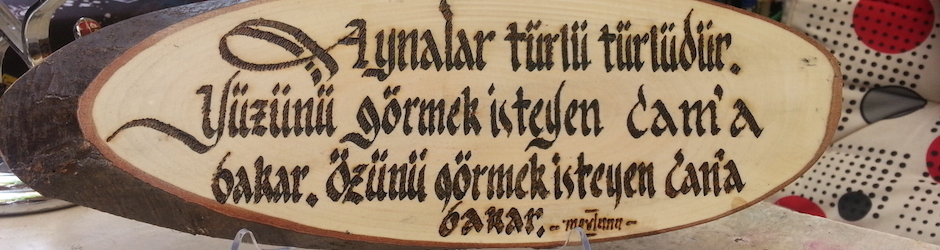 Aynalar türlü türlüdür.
Yüzünü görmek isteyen cam'a
bakar. Özünü görmek isteyen can'a
bakar. - mevlana -